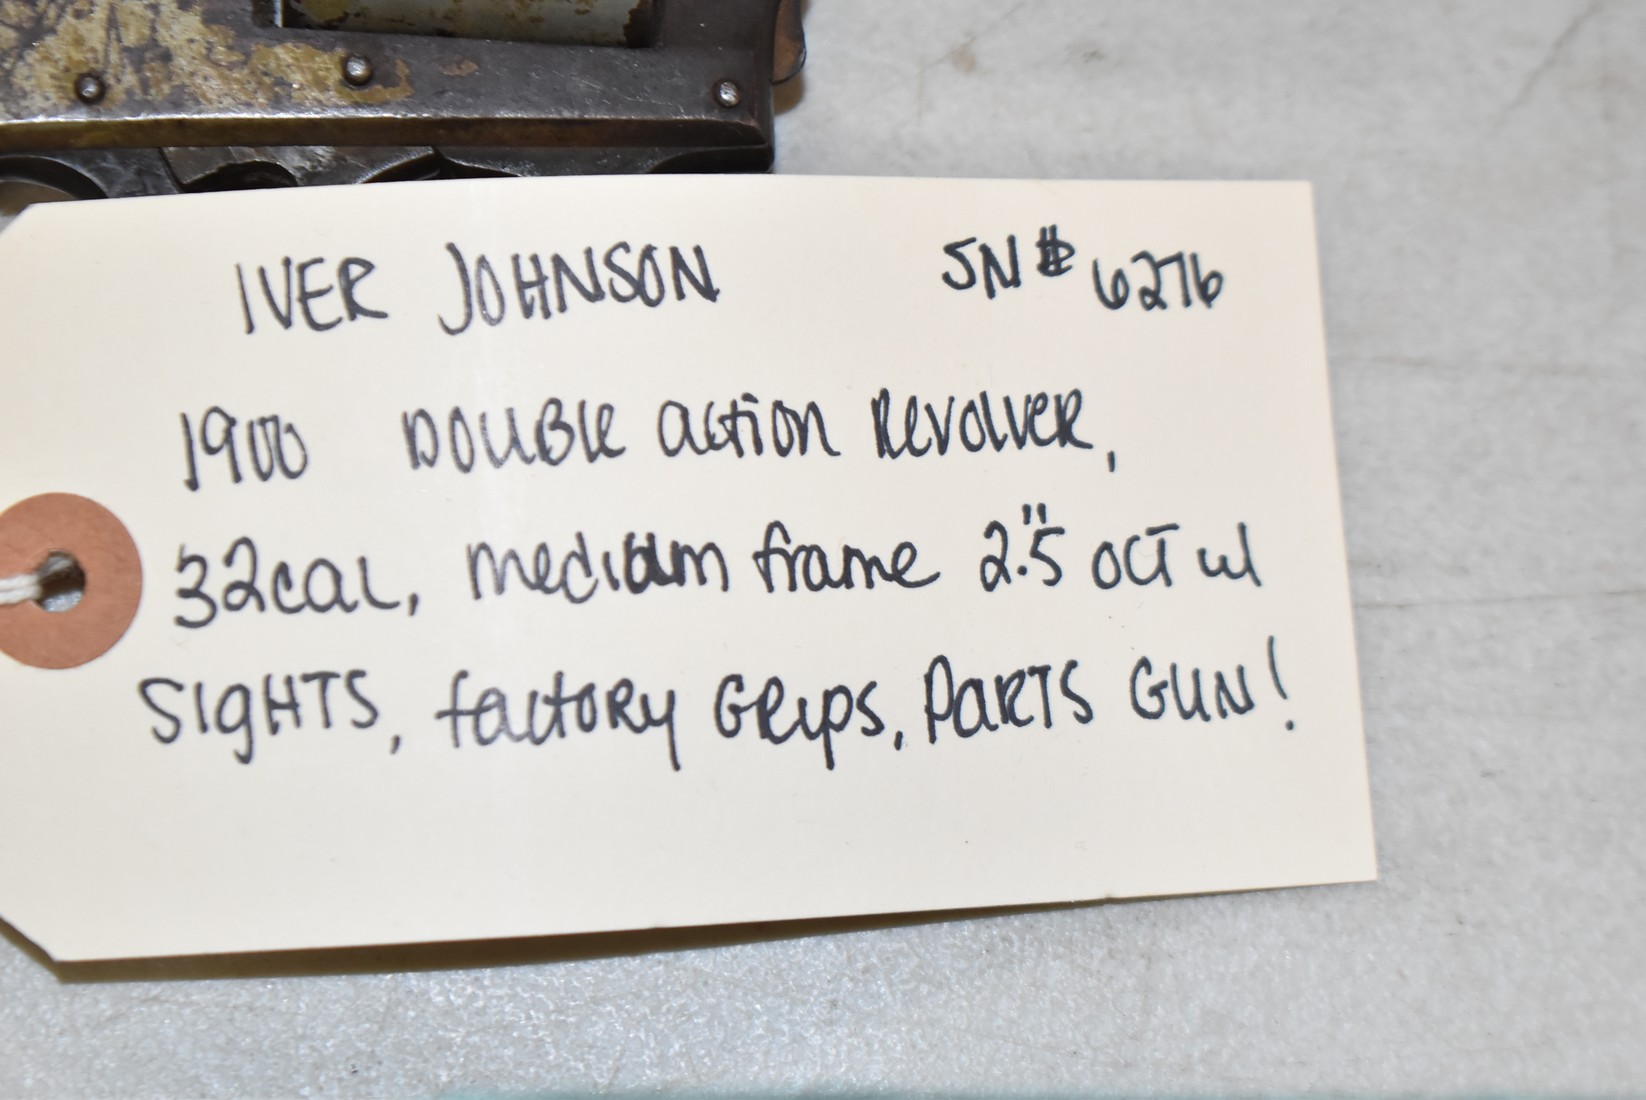 IVER JOHNSON SN# 6276
1900 DOUBLE action REVOLVER,
32cal, medium frame 2.5" OCT w/
SIGHTS, factory GRips, PARTS GUN!